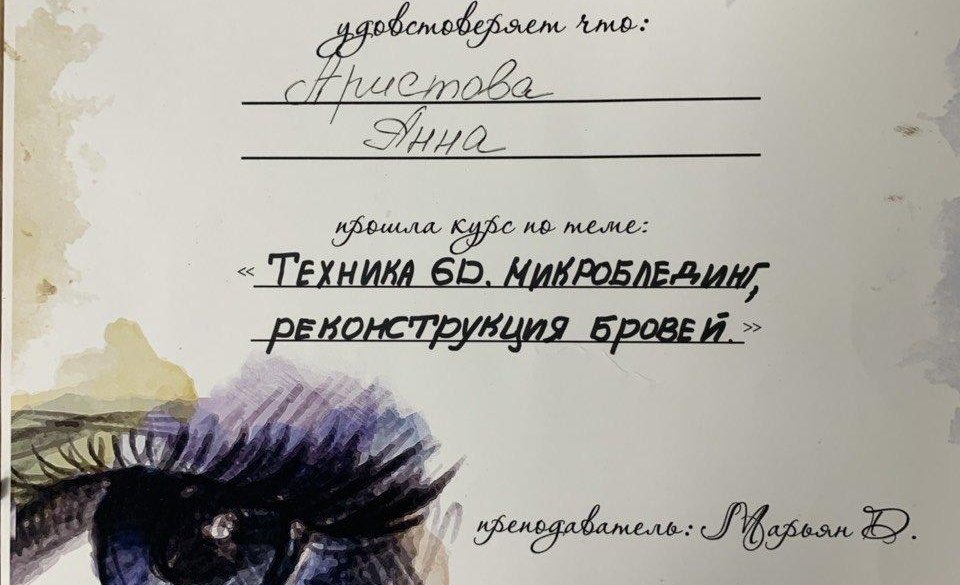 удовстоверяет что:
Аристова
Анна
прошла курс по теме:
« Техника 6D. микробле́динг,
реконструкция бровей. »
преподаватель: Марьян D.